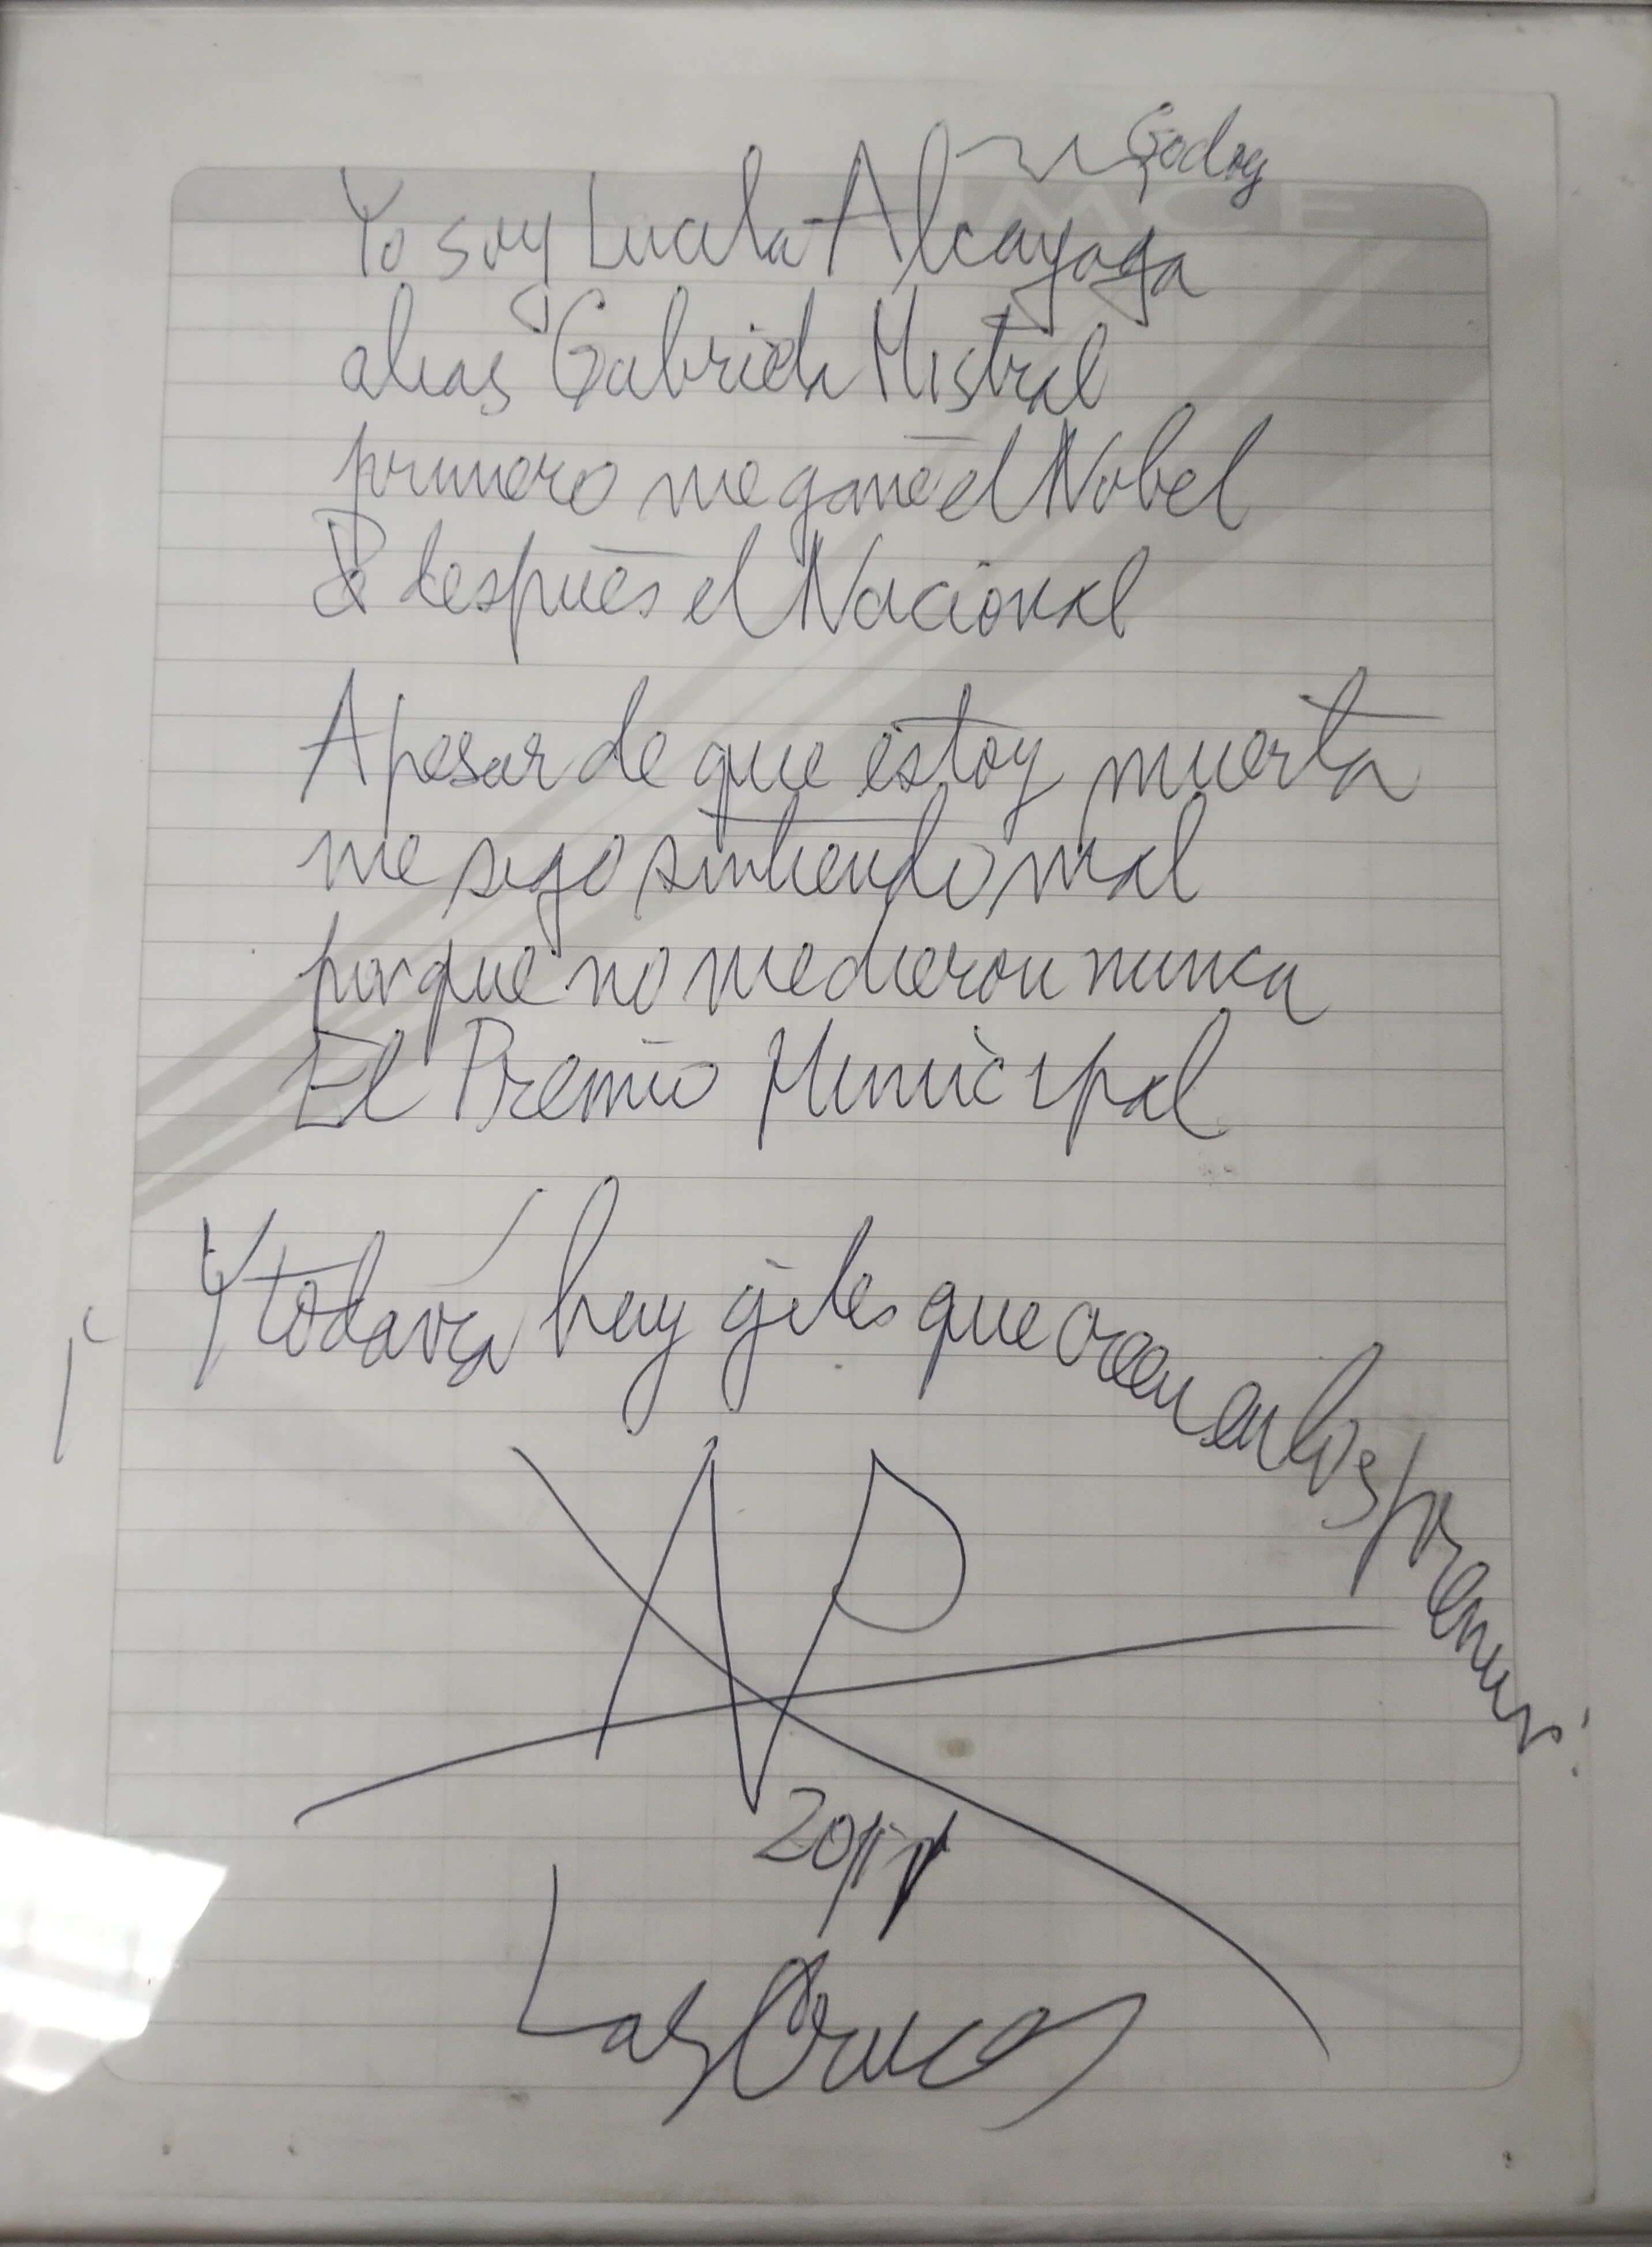 Godoy
Yo soy Lucila Alcayaga
alias Gabriela Mistral
primero me gané el Nobel
& después el Nacional
A pesar de que estoy muerta
me sigo sintiendo mal
porque no me dieron nunca
El Premio Municipal
¡Y todavía hay giles que creen en los premios!
NP
Las Cruces